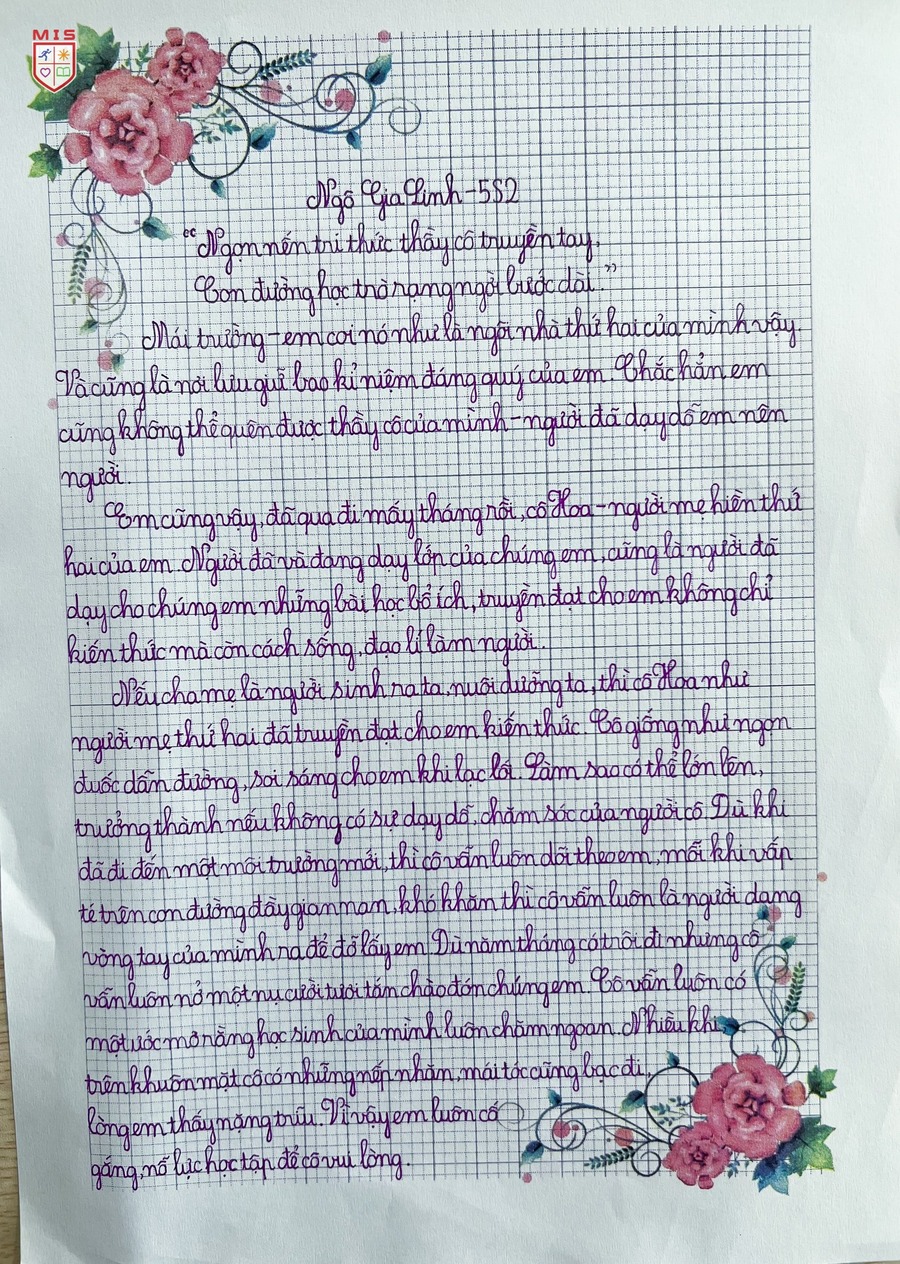 MIS
Ngô Gia Linh - 5S2
"Ngọn nến tri thức thầy cô truyền tay,
Con đường học trò rạng ngời bước dài."
Mái trường - em coi nó như là ngôi nhà thứ hai của mình vậy.
Và cũng là nơi lưu giữ bao kỉ niệm đáng quý của em. Chắc hẳn em
cũng không thể quên được thầy cô của mình - người đã dạy dỗ em nên
người.
Em cũng vậy, đã qua đi mấy tháng rồi, cô Hoa - người mẹ hiền thứ
hai của em. Người đã và đang dạy lớp của chúng em, cũng là người đã
dạy cho chúng em những bài học bổ ích, truyền đạt cho em không chỉ
kiến thức mà còn cách sống, đạo lí làm người.
Nếu cha mẹ là người sinh ra ta, nuôi dưỡng ta, thì cô Hoa như
người mẹ thứ hai đã truyền đạt cho em kiến thức. Cô giống như ngọn
đuốc dẫn đường, soi sáng cho em khi lạc lối. Làm sao có thể lớn lên,
trưởng thành nếu không có sự dạy dỗ, chăm sóc của người cô. Dù khi
đã đi đến một môi trường mới, thì cô vẫn luôn dõi theo em, mỗi khi vấp
té trên con đường đầy gian nan, khó khăn thì cô vẫn luôn là người dang
vòng tay của mình ra để đỡ lấy em. Dù năm tháng có trôi đi nhưng cô
vẫn luôn nở một nụ cười tươi tắn chào đón chúng em. Cô vẫn luôn có
một ước mơ rằng học sinh của mình luôn chăm ngoan. Nhiều khi,
trên khuôn mặt cô có những nếp nhăn, mái tóc cũng bạc đi,
lòng em thấy nặng trĩu. Vì vậy em luôn cố
gắng, nỗ lực học tập để cô vui lòng.